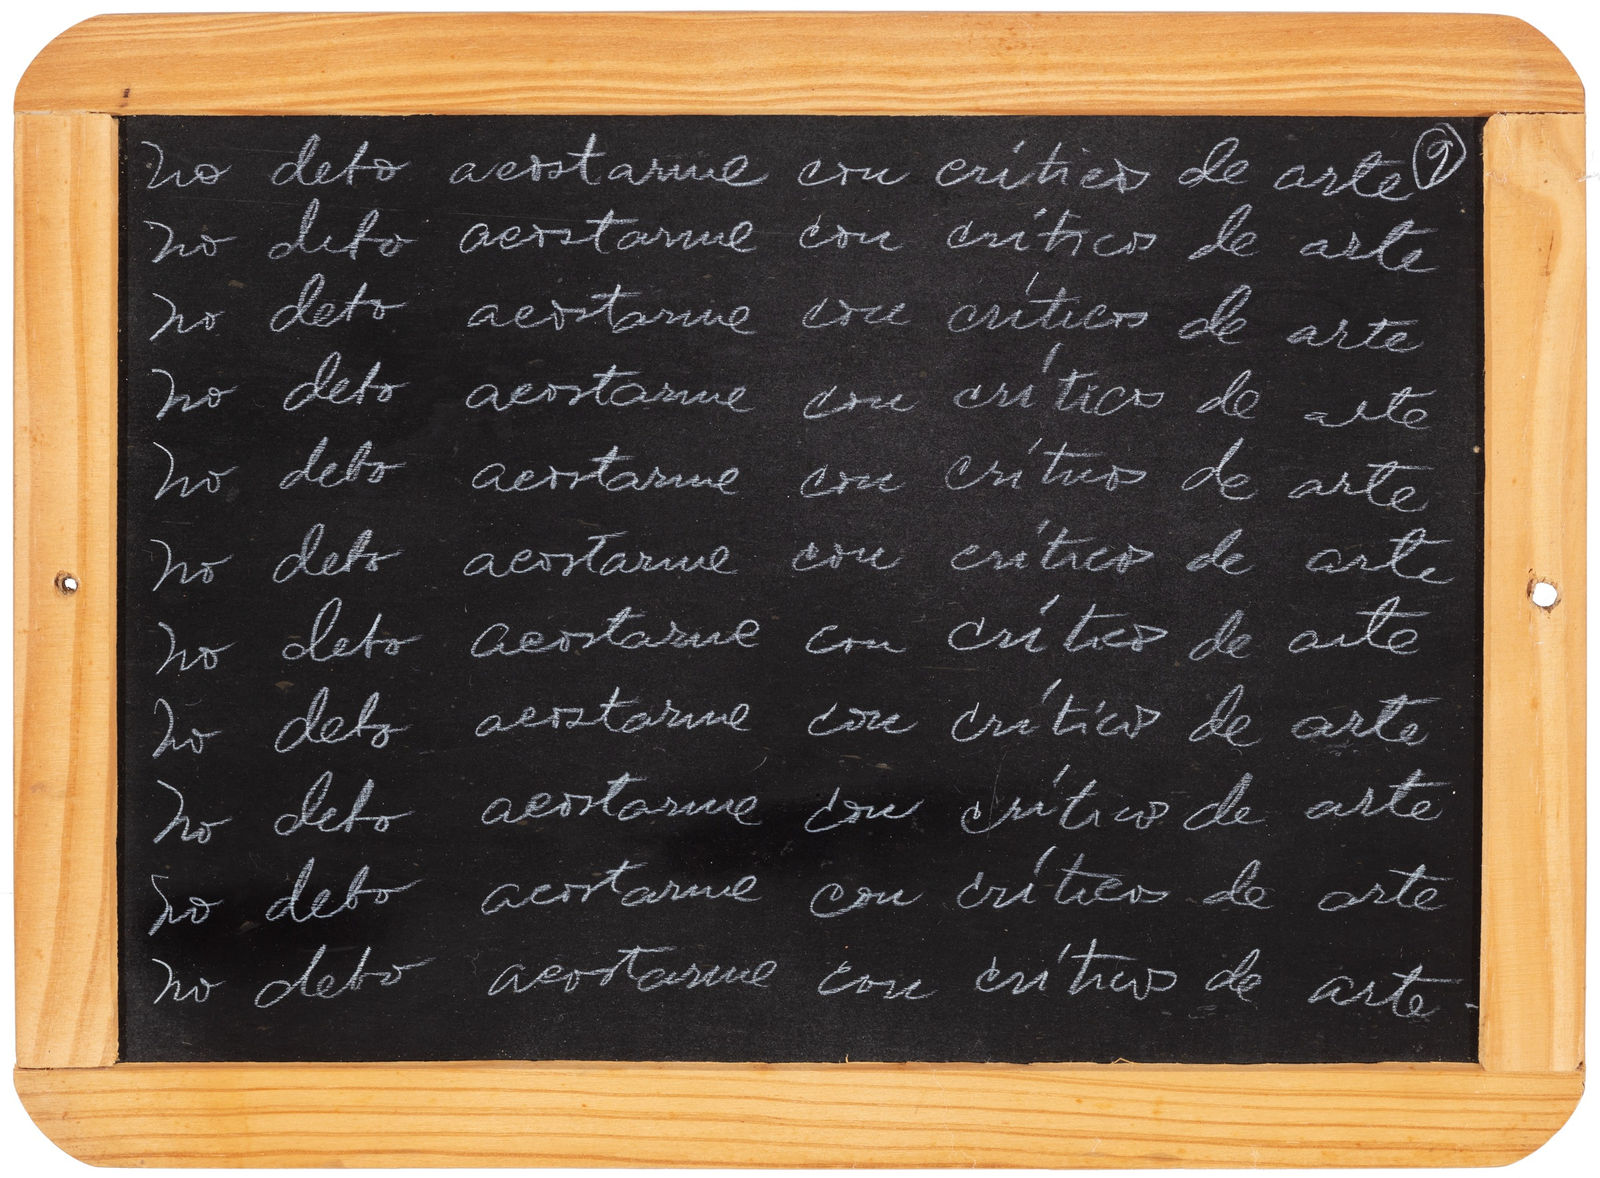 no debo acostarme con críticos de arte 9
no debo acostarme con críticos de arte
no debo acostarme con críticos de arte
no debo acostarme con críticos de arte
no debo acostarme con críticos de arte
no debo acostarme con críticos de arte
no debo acostarme con críticos de arte
no debo acostarme con críticos de arte
no debo acostarme con críticos de arte
no debo acostarme con críticos de arte
no debo acostarme con críticos de arte